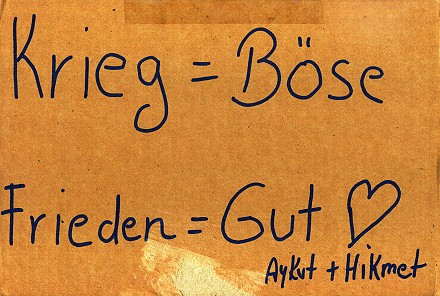 Krieg = Böse
Frieden = Gut ♡
Aykut + Hikmet